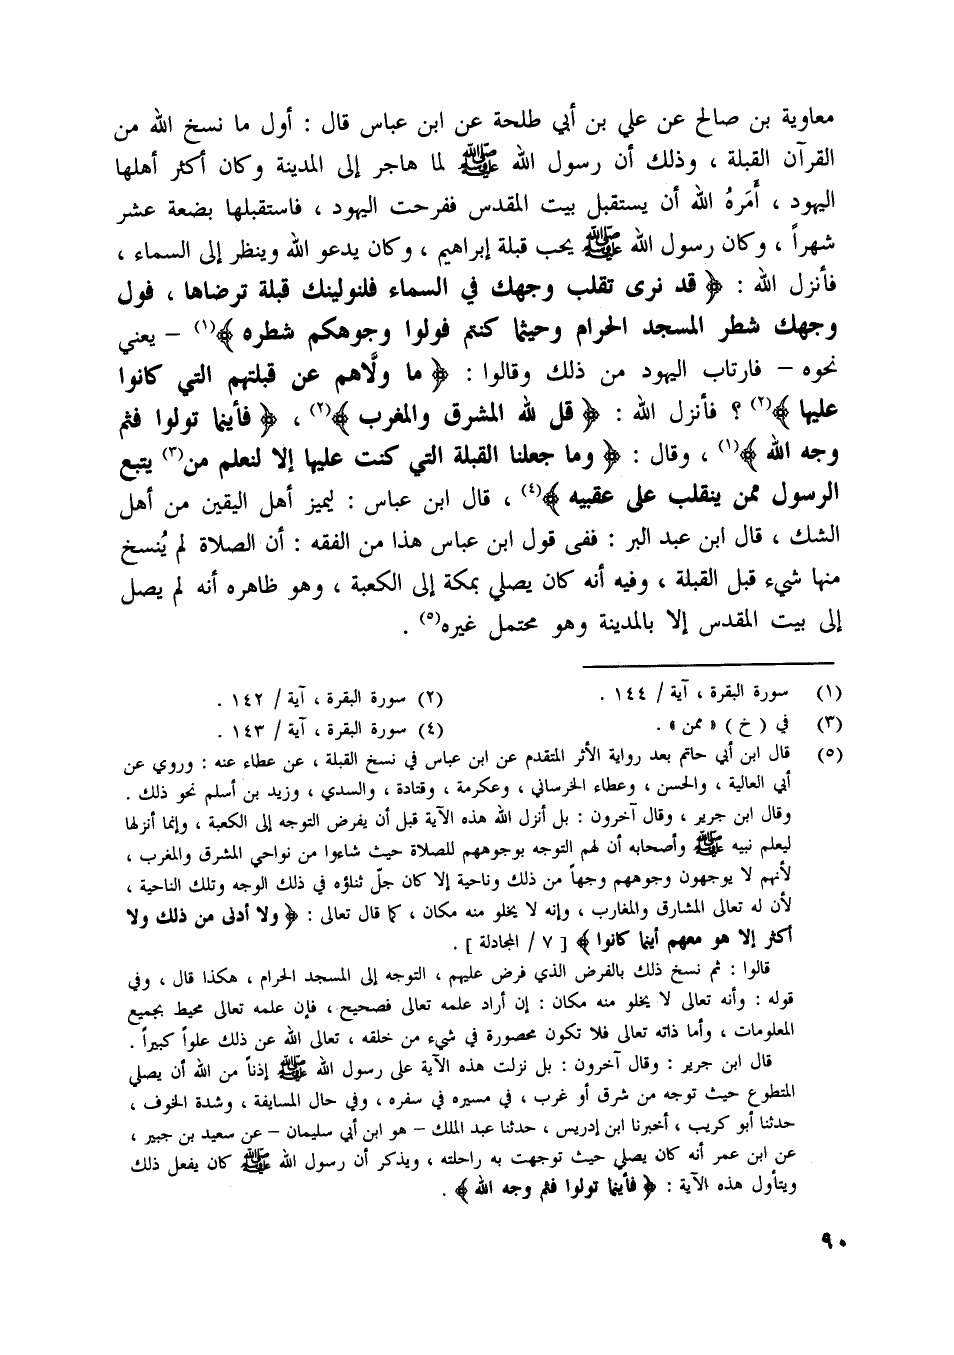 معاوية بن صالح عن علي بن أبي طلحة عن ابن عباس قال : أول ما نسخ الله من
القرآن القبلة ، وذلك أن رسول الله ﷺ لما هاجر إلى المدينة وكان أكثر أهلها
اليهود ، أَمَرهُ الله أن يستقبل بيت المقدس ففرحت اليهود ، فاستقبلها بضعة عشر
شهراً ، وكان رسول الله ﷺ يحب قبلة إبراهيم ، وكان يدعو الله وينظر إلى السماء ،
فأنزل الله : ﴿ قد نرى تقلب وجهك في السماء فلنولينك قبلة ترضاها ، فول
وجهك شطر المسجد الحرام وحيثما كنتم فولوا وجوهكم شطره ﴾(١) – يعني
نحوه – فارتاب اليهود من ذلك وقالوا : ﴿ ما ولَّاهم عن قبلتهم التي كانوا
عليها ﴾(٢) ؟ فأنزل الله : ﴿ قل لله المشرق والمغرب ﴾(٢) ، ﴿ فأينما تولوا فثم
وجه الله ﴾(١) ، وقال : ﴿ وما جعلنا القبلة التي كنت عليها إلا لنعلم من(٣) يتبع
الرسول ممن ينقلب على عقبيه ﴾(٤) ، قال ابن عباس : ليميز أهل اليقين من أهل
الشك ، قال ابن عبد البر : ففى قول ابن عباس هذا من الفقه : أن الصلاة لم يُنسخ
منها شيء قبل القبلة ، وفيه أنه كان يصلي بمكة إلى الكعبة ، وهو ظاهره أنه لم يصل
إلى بيت المقدس إلا بالمدينة وهو محتمل غيره(٥) .
(١) سورة البقرة ، آية / ١٤٤ . (٢) سورة البقرة ، آية / ١٤٢ .
(٣) في ( خ ) « ممن » . (٤) سورة البقرة ، آية / ١٤٣ .
(٥) قال ابن أبي حاتم بعد رواية الأثر المتقدم عن ابن عباس في نسخ القبلة ، عن عطاء عنه : وروي عن
أبي العالية ، والحسن ، وعطاء الخرساني ، وعكرمة ، وقتادة ، والسدي ، وزيد بن أسلم نحو ذلك .
وقال ابن جرير ، وقال آخرون : بل أنزل الله هذه الآية قبل أن يفرض التوجه إلى الكعبة ، وإنما أنزلها
ليعلم نبيه ﷺ وأصحابه أن لهم التوجه بوجوههم للصلاة حيث شاءوا من نواحي المشرق والمغرب ،
لأنهم لا يوجهون وجوههم وجهاً من ذلك وناحية إلا كان جلّ ثناؤه في ذلك الوجه وتلك الناحية ،
لأن له تعالى المشارق والمغارب ، وإنه لا يخلو منه مكان ، كما قال تعالى : ﴿ ولا أدنى من ذلك ولا
أكثر إلا هو معهم أينما كانوا ﴾ [ ٧ / المجادلة ] .
قالوا : ثم نسخ ذلك بالفرض الذي فرض عليهم ، التوجه إلى المسجد الحرام ، هكذا قال ، وفي
قوله : وأنه تعالى لا يخلو منه مكان : إن أراد علمه تعالى فصحيح ، فإن علمه تعالى محيط بجميع
المعلومات ، وأما ذاته تعالى فلا تكون محصورة في شيء من خلقه ، تعالى الله عن ذلك علواً كبيراً .
قال ابن جرير : وقال آخرون : بل نزلت هذه الآية على رسول الله ﷺ إذناً من الله أن يصلي
المتطوع حيث توجه من شرق أو غرب ، في مسيره في سفره ، وفي حال المسايفة ، وشدة الخوف ،
حدثنا أبو كريب ، أخبرنا ابن إدريس ، حدثنا عبد الملك – هو ابن أبي سليمان – عن سعيد بن جبير ،
عن ابن عمر أنه كان يصلي حيث توجهت به راحلته ، ويذكر أن رسول الله ﷺ كان يفعل ذلك
ويتأول هذه الآية : ﴿ فأينما تولوا فثم وجه الله ﴾ .
٩٠